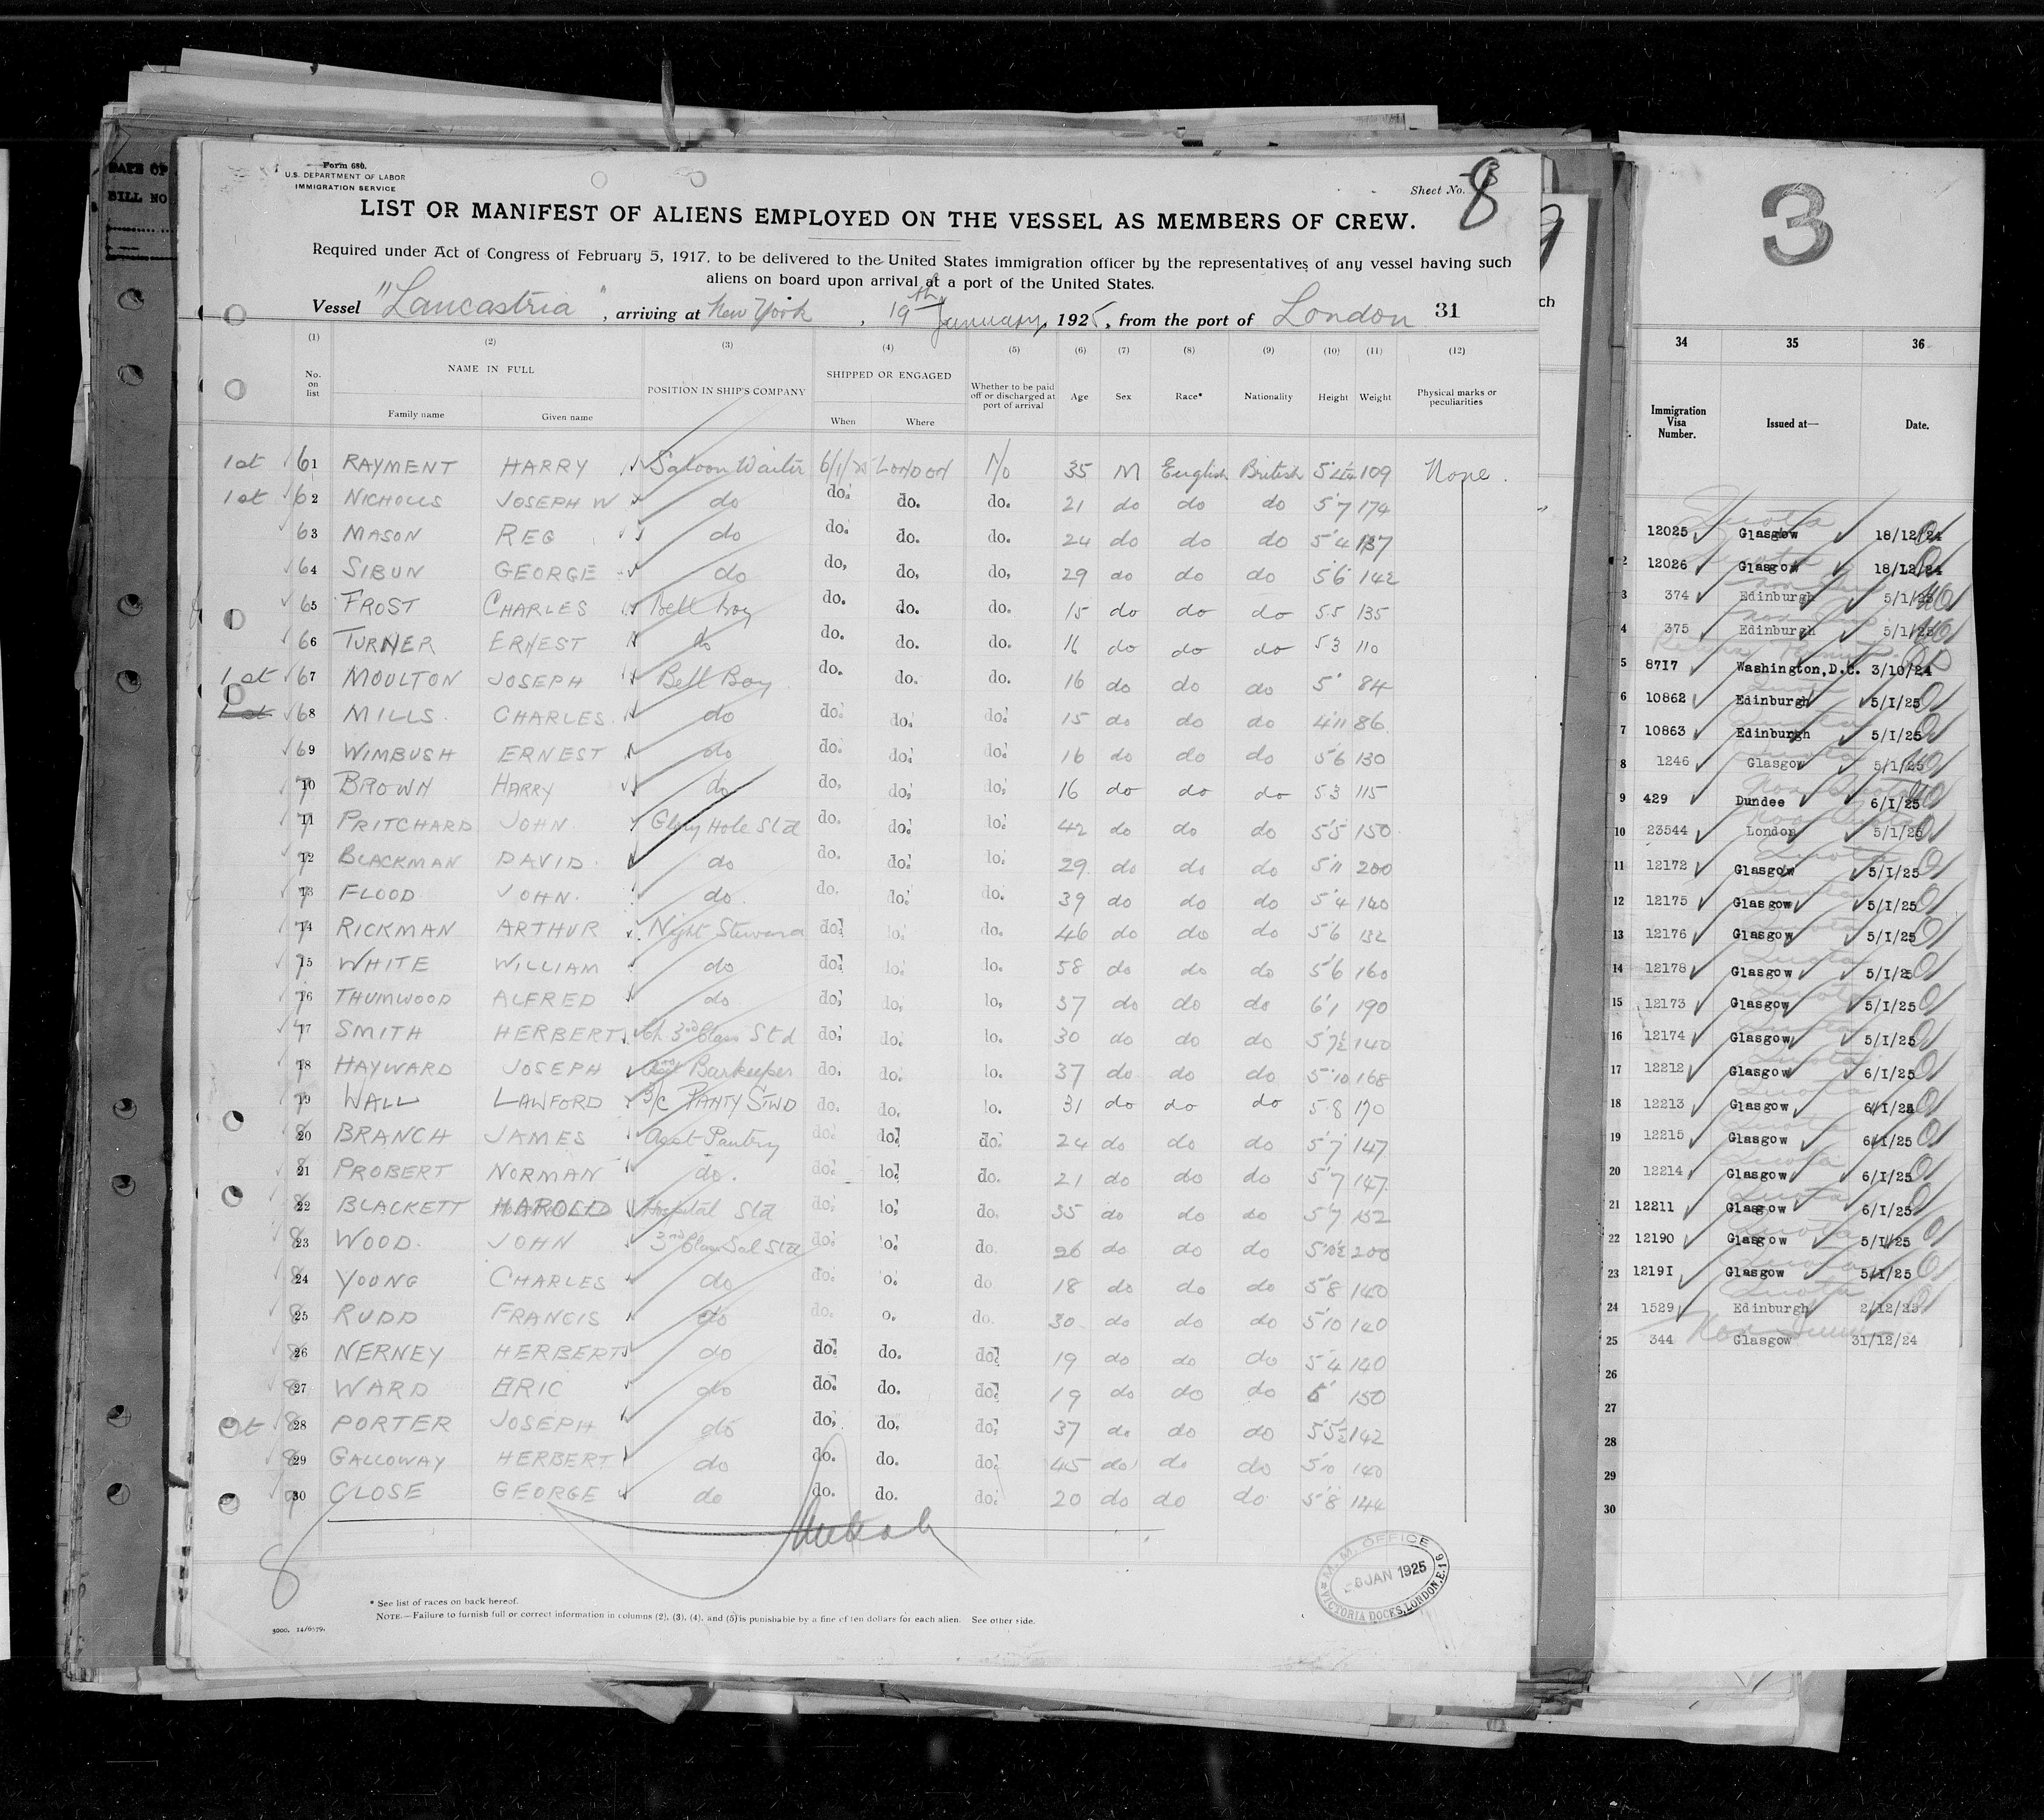 DATE OF
BILL NO
Form 680.
U.S. DEPARTMENT OF LABOR
IMMIGRATION SERVICE
Sheet No. 8
LIST OR MANIFEST OF ALIENS EMPLOYED ON THE VESSEL AS MEMBERS OF CREW.
Required under Act of Congress of February 5, 1917, to be delivered to the United States immigration officer by the representatives of any vessel having such
aliens on board upon arrival at a port of the United States.
Vessel "Lancastria", arriving at New York, 19th January, 1925, from the port of London 31
(1) (2) (3) (4) (5) (6) (7) (8) (9) (10) (11) (12)
No. on list NAME IN FULL POSITION IN SHIP'S COMPANY SHIPPED OR ENGAGED Whether to be paid off or discharged at port of arrival Age Sex Race* Nationality Height Weight Physical marks or peculiarities
Family name Given name When Where
1st 61 RAYMENT HARRY Saloon Waiter 6/1/25 LONDON No 35 M English British 109 None.
1st 62 NICHOLLS JOSEPH W do do. do. do. 21 do do do 5'7 174
63 MASON REG do do. do. do. 24 do do do 5'4 137
64 SIBUN GEORGE do do. do. do. 29 do do do 5'6 142
65 FROST CHARLES Bell boy do. do. do. 15 do do do 5.5 135
66 TURNER ERNEST do do. do. do. 16 do do do 5 3 110
1st 67 MOULTON JOSEPH Bell Boy do. do. do. 16 do do do 5' 84
1st 68 MILLS. CHARLES. do do. do. do. 15 do do do 4'11 86.
69 WIMBUSH ERNEST do do. do. do. 16 do do do 5'6 130
70 BROWN HARRY do do. do. do. 16 do do do 5 3 115
71 PRITCHARD JOHN Glory Hole Std do. do. lo. 42 do do do 5'5 150
72 BLACKMAN DAVID. do do. do. lo. 29 do do do 5'11 200
73 FLOOD. JOHN. do. do. do. do. 39 do do do 5'4 140
74 RICKMAN ARTHUR Night Steward do. lo. do. 46 do do do 5'6 132
75 WHITE WILLIAM do do. lo. lo. 58 do do do 5'6 160
76 THUMWOOD ALFRED do do. do. lo. 37 do do do 6'1 190
77 SMITH HERBERT. Ch. 3rd Class Std do. do. lo. 30 do do do 5'7½ 140
78 HAYWARD JOSEPH Asst Barkeeper do. do. lo. 37 do do do 5'10 168
79 WALL LAWFORD 3/C PANTY STWD do. do. lo. 31 do do do 5.8 170
80 BRANCH JAMES Asst Pantry do. do. do. 24 do do do 5'7 147
81 PROBERT NORMAN do. do. lo. do. 21 do do do 5'7 147.
82 BLACKETT HAROLD Hospital Std do. lo. do. 35 do do do 5'7 152
83 WOOD. JOHN 3rd Class Sal Std do. o. do. 26 do do do 200
84 YOUNG CHARLES do do. o. do. 18 do do do 5'8 140
85 RUDD FRANCIS do do. o. do. 30 do do do 5'10 140
86 NERNEY HERBERT do do. do. do. 19 do do do 5'4 140
87 WARD ERIC do do. do. do. 19 do do do 150
st 88 PORTER JOSEPH do do. do. do. 37 do do do 5'5½ 142
89 GALLOWAY HERBERT do do. do. do. 45 do do do 5'10 140
90 CLOSE GEORGE do do. do. do. 20 do do do 5'8 144
8
M. M. OFFICE
6 JAN 1925
VICTORIA DOCKS, LONDON, E.16
* See list of races on back hereof.
NOTE.—Failure to furnish full or correct information in columns (2), (3), (4), and (5) is punishable by a fine of ten dollars for each alien. See other side.
3000. 14/6579.
ch
3
34 35 36
Immigration Visa Number. Issued at— Date.
12025 Glasgow 18/12/24
2 12026 Glasgow 18/12/24
3 374 Edinburgh 5/1/25
4 375 Edinburgh 5/1/25
5 8717 Washington,D.C. 3/10/24
6 10862 Edinburgh 5/I/25
7 10863 Edinburgh 5/I/25
8 1246 Glasgow 5/1/25
9 429 Dundee 6/I/25
10 23544 London 5/1/25
11 12172 Glasgow 5/I/25
12 12175 Glasgow 5/I/25
13 12176 Glasgow 5/I/25
14 12178 Glasgow 5/I/25
15 12173 Glasgow 5/I/25
16 12174 Glasgow 5/I/25
17 12212 Glasgow 6/I/25
18 12213 Glasgow 6/I/25
19 12215 Glasgow 6/I/25
20 12214 Glasgow 6/I/25
21 12211 Glasgow 6/I/25
22 12190 Glasgow 5/I/25
23 1219I Glasgow 5/I/25
24 1529 Edinburgh 2/12/25
25 344 Glasgow 31/12/24
26
27
28
29
30